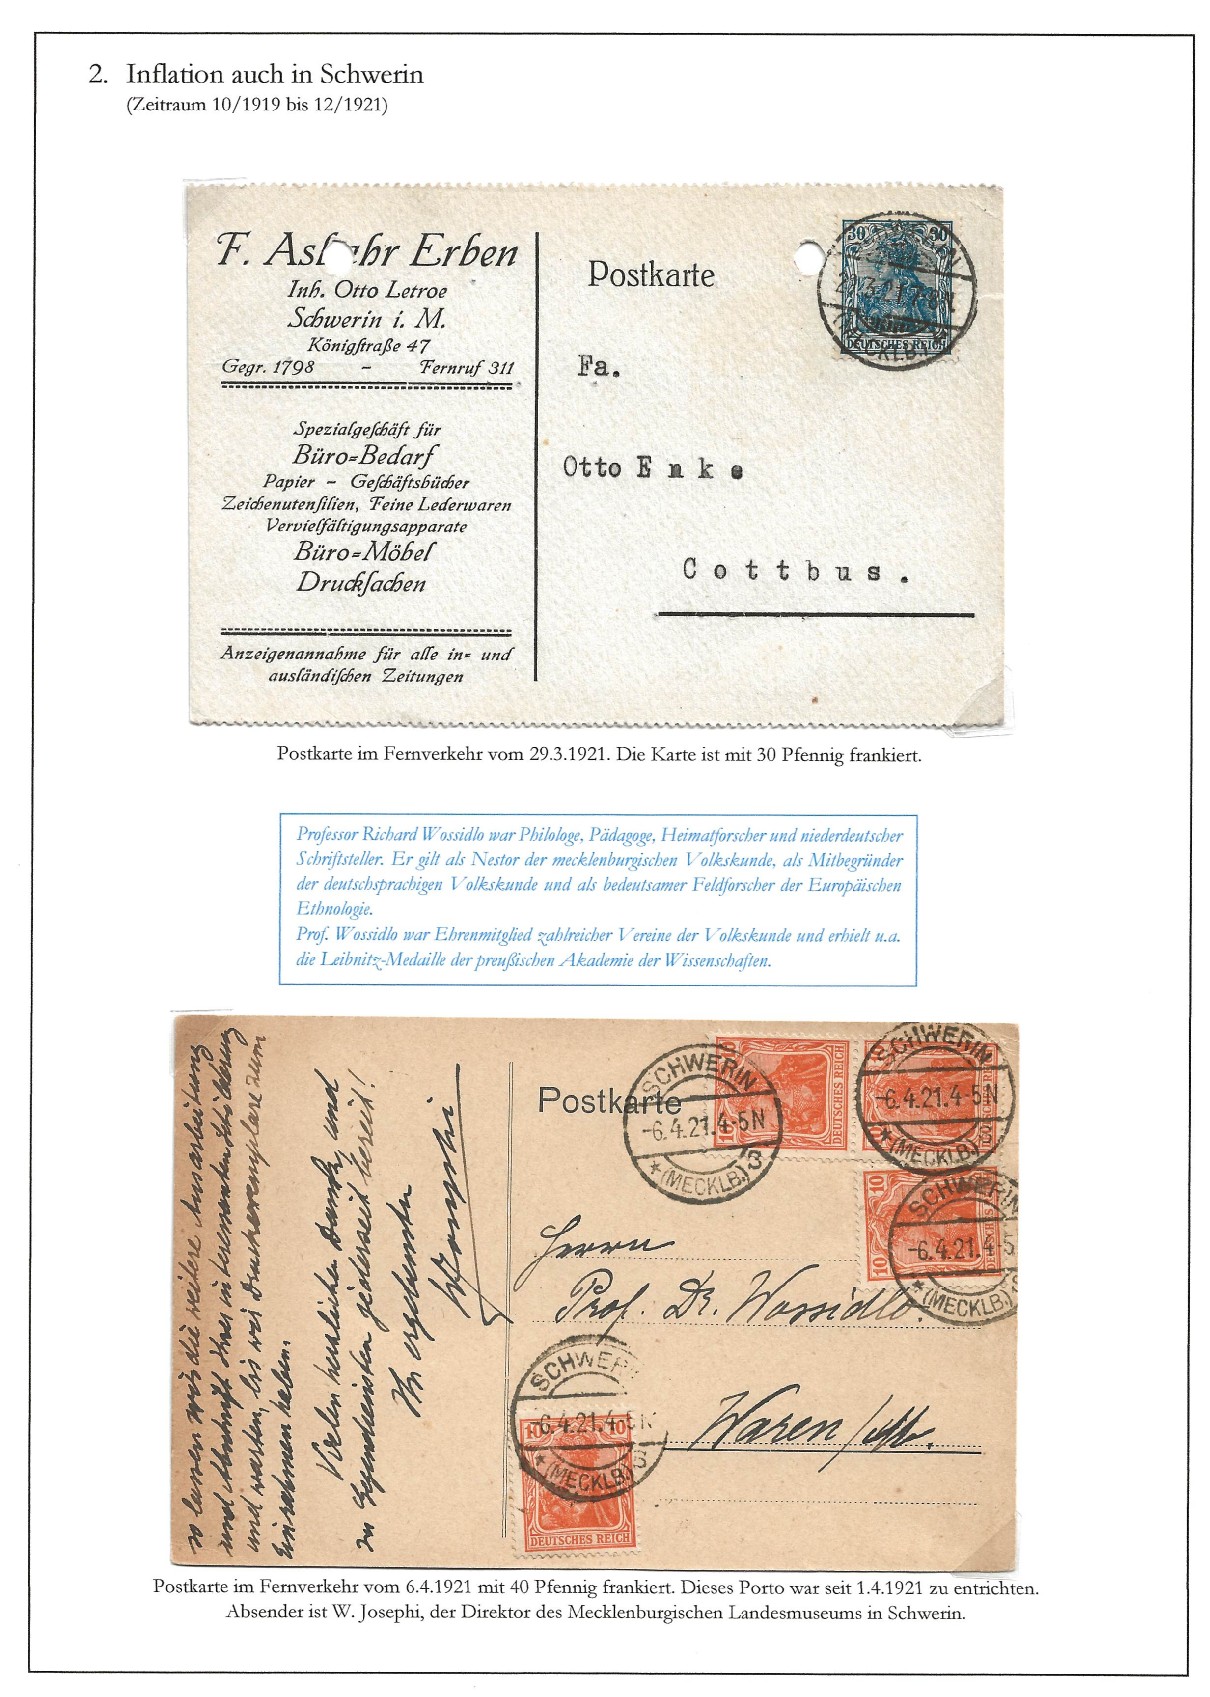 2. Inflation auch in Schwerin
(Zeitraum 10/1919 bis 12/1921)
F. As hr Erben
Inh. Otto Letroe
Schwerin i. M.
Königſtraße 47
Gegr. 1798 - Fernruf 311
Spezialgeſchäft für
Büro=Bedarf
Papier - Geſchäftsbücher
Zeichenutenſilien, Feine Lederwaren
Vervielfältigungsapparate
Büro=Möbel
Druckſachen
Anzeigenannahme für alle in= und
ausländiſchen Zeitungen
Postkarte
30 30
DEUTSCHES REICH
Fa.
Otto Enke
Cottbus.
Postkarte im Fernverkehr vom 29.3.1921. Die Karte ist mit 30 Pfennig frankiert.
Professor Richard Wossidlo war Philologe, Pädagoge, Heimatforscher und niederdeutscher
Schriftsteller. Er gilt als Nestor der mecklenburgischen Volkskunde, als Mitbegründer
der deutschsprachigen Volkskunde und als bedeutsamer Feldforscher der Europäischen
Ethnologie.
Prof. Wossidlo war Ehrenmitglied zahlreicher Vereine der Volkskunde und erhielt u.a.
die Leibnitz-Medaille der preußischen Akademie der Wissenschaften.
so lassen wir die weitere Ausarbeitung
und warten, bis wir Druckexemplare zum
Einrahmen haben.
Vielen herzlichen Dank, und
zu Gegendiensten jederzeit bereit!
Ihr ergebenster
Josephi
Postkarte
SCHWERIN
-6.4.21.4-5N
*(MECKLB.)3
10
DEUTSCHES REICH
SCHWERIN
-6.4.21.4-5N
*(MECKLB.)3
10
SCHWERIN
-6.4.21.4-5
*(MECKLB.)
Herrn
Prof. Dr. Wossidlo.
Waren /Mb.
SCHWER
-6.4.21.4-5N
*(MECKLB.)3
10 10
DEUTSCHES REICH
Postkarte im Fernverkehr vom 6.4.1921 mit 40 Pfennig frankiert. Dieses Porto war seit 1.4.1921 zu entrichten.
Absender ist W. Josephi, der Direktor des Mecklenburgischen Landesmuseums in Schwerin.